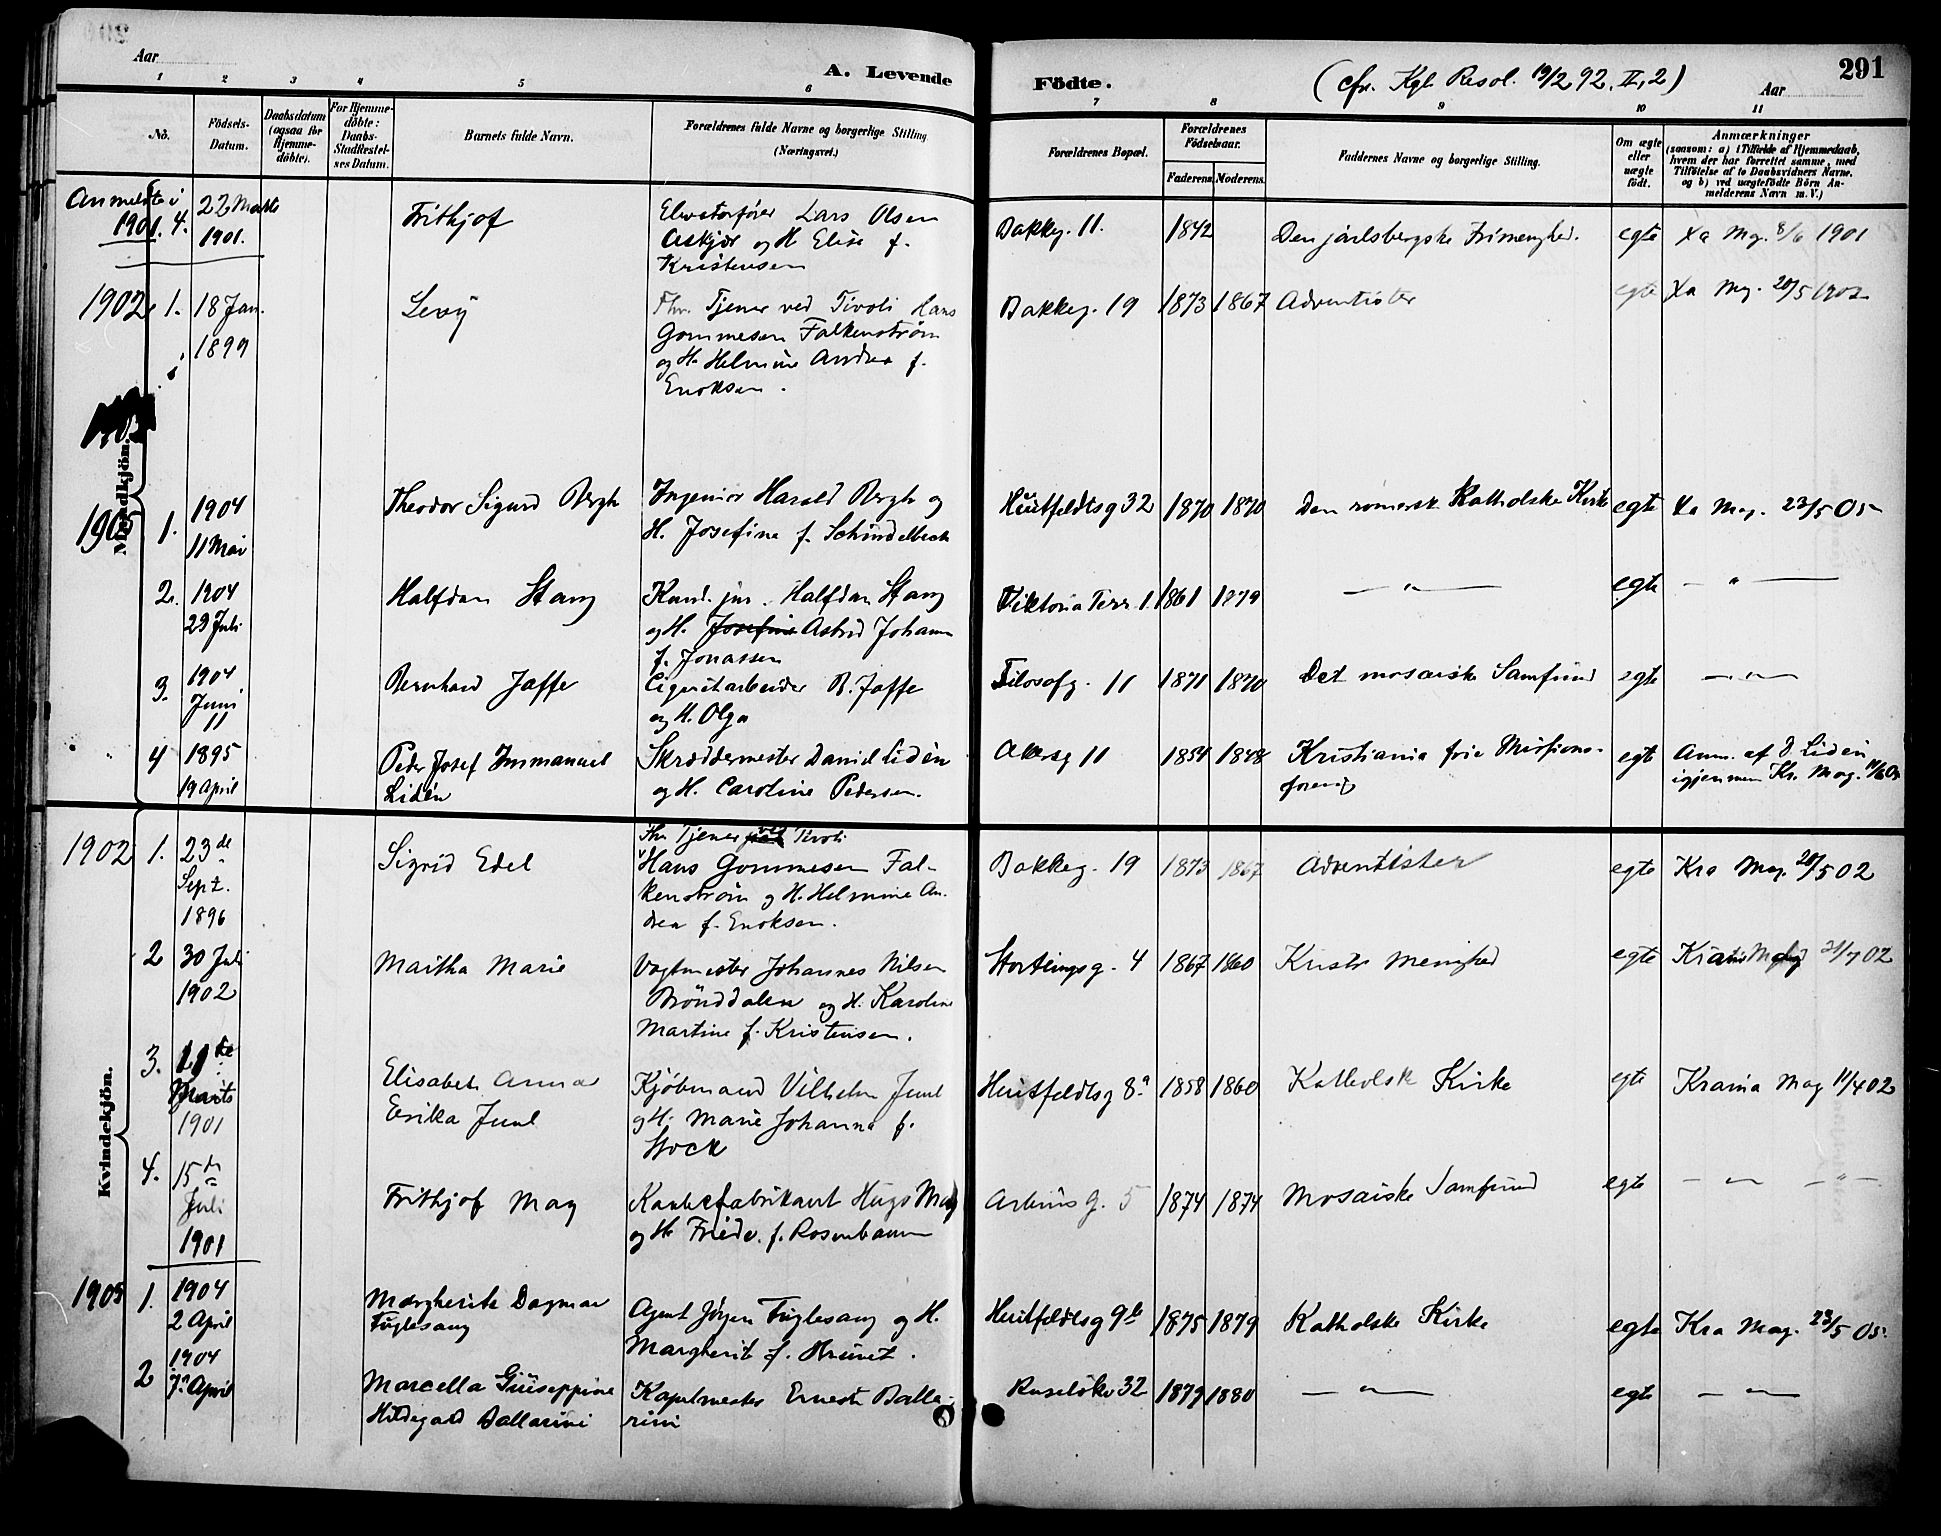 291
Aar
A. Levende Födte.
(cfr. Kgl. Resol. 19/2 92. II, 2)
Aar
1 2 3 4 5 6 7 8 9 10 11
No.
Födsels-Datum.
Daabsdatum (ogsaa for Hjemme-döbte).
For Hjemme-döbte: Daabs-Stadfæstel-ses Datum.
Barnets fulde Navn.
Forældrenes fulde Navne og borgerlige Stilling
(Næringsvei.)
Forældrenes Bopæl.
Forældrenes Födselsaar.
Faderens. Moderens.
Faddernes Navne og borgerlige Stilling.
Om ægte eller uægte födt.
Anmærkninger
(saasom: a) i Tilfælde af Hjemmedaab,
hvem der har forrettet samme, med
Tilföielse af to Daabsvidners Navne,
og b) ved uægtefödte Börn An-
melderens Navn m. V.)
Mandkjön.
Anmeldte i 1901. 4. 22 Marts 1901. Frithjof
Elevatorfører Lars Olsen
Askjær og H. Elise f.
Kristensen
Bakkeg. 11. 1842 Den jarlsbergske Frimenghed. egte Xa Mg. 8/6 1901
1902 1. 18 Jan. 1899 Levy
Fhv. Tjener ved Tivoli Hans
Gommesen Falkenstrøm
og H. Helmine Andrea f.
Enoksen.
Bakkeg. 19 1873 1867 Adventister egte Xa Mg. 20/5 1902
1905 1. 1904 11 Mai Theodor Sigurd Bergh
Ingeniør Harald Bergh og
H. Josefine f. Schindelbeck
Huitfeldtsg 32 1870 1870 Den romersk Katholske Kirke egte Xa Mag. 23/5 05
2. 1904 29 Juli Halfdan Stang
Kand. jur. Halfdan Stang
og H. Josefine Astrid Johanne
f. Jonassen
Viktoria Terr. 1. 1861 1879 — " — egte — " —
3. 1904 Juni 11 Bernhard Jaffe
Cigaretarbeider B. Jaffe
og H. Olga
Filosofg. 11 1871 1870 Det mosaiske Samfund egte — " —
4 1895 19 April Peder Josef Immanuel
Lidén
Skræddermester Daniel Lidén
og H. Caroline Pedersen.
Akersg 11 1854 1848 Kristiania frie Missions-
foreng egte Anm. af D. Lidén
igjennem Kr. Mag.
Kvindekjön.
1902 1. 23de Sept. 1896 Sigrid Edel
Fhv Tjener ved Tivoli
Hans Gommesen Fal-
kenstrøm og H. Helmine An-
drea f. Enoksen.
Bakkeg. 19 1873 1867 Adventister egte Kra Mag. 20/5 02
2 30 Juli 1902 Martha Marie
Vagtmester Johannes Nilsen
Brönddalen og H. Karoline
Martine f. Kristensen.
Stortingsg. 4 1867 1860 Kristi Menighed egte
3. Marts 1901 Elisabeth Anna
Erika Juul
Kjøbmand Vilhelm Juul
og H. Marie Johanna f.
Stock
Huitfeldtsg 8a 1858 1860 Katholsk Kirke egte Krania Mag 11/4 02
4. 15de Juli 1901 Frithjof May
fabrikant Hugo May
og H. Frieda f. Rosenbaum
g. 5 1874 1874 Mosaiske Samfund egte — " — — " —
1905 1. 1904 2 April Margherite Dagmar
Fuglesang
Agent Jörgen Fuglesang og H.
Margherit f. Brunet.
Huitfeldtsg 9b 1875 1879 Katholske Kirke egte Kra Mag. 23/5 05.
2 1904 7 April Marcella Giuseppine
Hildegard Ballarini
Kapelmester Ernesto Balla-
rini
Ruseløkv 32 1879 1880 — " — egte — " —